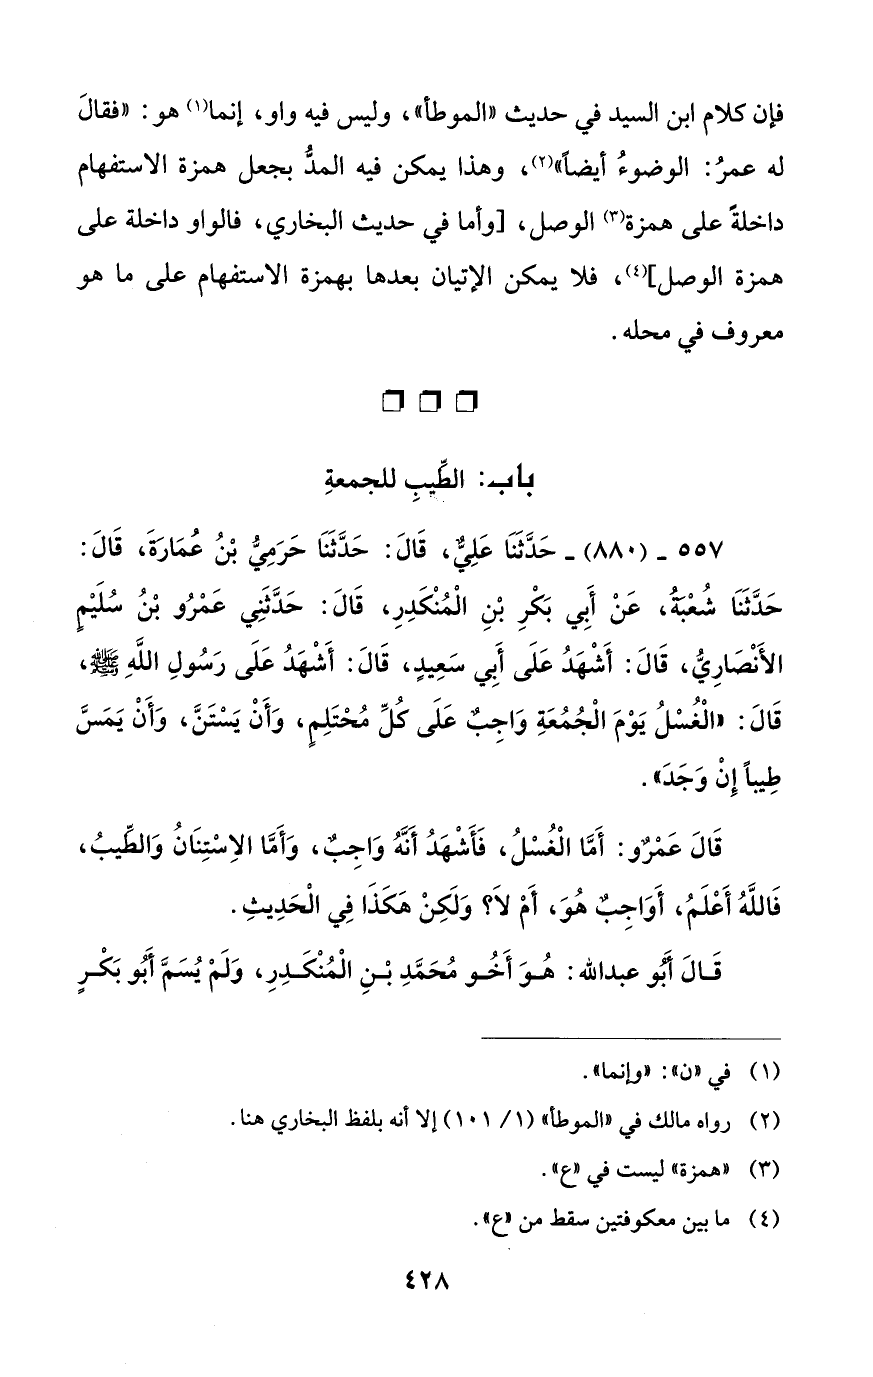 فإن كلام ابن السيد في حديث «الموطأ»، وليس فيه واو، إنما(١) هو: «فقالَ
له عمرُ: الوضوءُ أيضاً»(٢)، وهذا يمكن فيه المدُّ بجعل همزة الاستفهام
داخلةً على همزة(٣) الوصل، [وأما في حديث البخاري، فالواو داخلة على
همزة الوصل](٤)، فلا يمكن الإتيان بعدها بهمزة الاستفهام على ما هو
معروف في محله.
باب: الطِّيبِ للجمعةِ
٥٥٧ ـ (٨٨٠) ـ حَدَّثَنَا عَلِيٌّ، قَالَ: حَدَّثَنَا حَرَمِيُّ بْنُ عُمَارَةَ، قَالَ:
حَدَّثَنَا شُعْبَةُ، عَنْ أَبِي بَكْرِ بْنِ الْمُنْكَدِرِ، قَالَ: حَدَّثَنِي عَمْرُو بْنُ سُلَيْمٍ
الأَنْصَارِيُّ، قَالَ: أَشْهَدُ عَلَى أَبِي سَعِيدٍ، قَالَ: أَشْهَدُ عَلَى رَسُولِ اللَّهِ ﷺ،
قَالَ: «الْغُسْلُ يَوْمَ الْجُمُعَةِ وَاجِبٌ عَلَى كُلِّ مُحْتَلِمٍ، وَأَنْ يَسْتَنَّ، وَأَنْ يَمَسَّ
طِيباً إِنْ وَجَدَ».
قَالَ عَمْرٌو: أَمَّا الْغُسْلُ، فَأَشْهَدُ أَنَّهُ وَاجِبٌ، وَأَمَّا الاِسْتِنَانُ وَالطِّيبُ،
فَاللَّهُ أَعْلَمُ، أَوَاجِبٌ هُوَ، أَمْ لاَ؟ وَلَكِنْ هَكَذَا فِي الْحَدِيثِ.
قَالَ أَبُو عبدالله: هُوَ أَخُو مُحَمَّدِ بْنِ الْمُنْكَدِرِ، وَلَمْ يُسَمَّ أَبُو بَكْرٍ
(١) في «ن»: «وإنما».
(٢) رواه مالك في «الموطأ» (١/ ١٠١) إلا أنه بلفظ البخاري هنا.
(٣) «همزة» ليست في «ع».
(٤) ما بين معكوفتين سقط من «ع».
٤٢٨